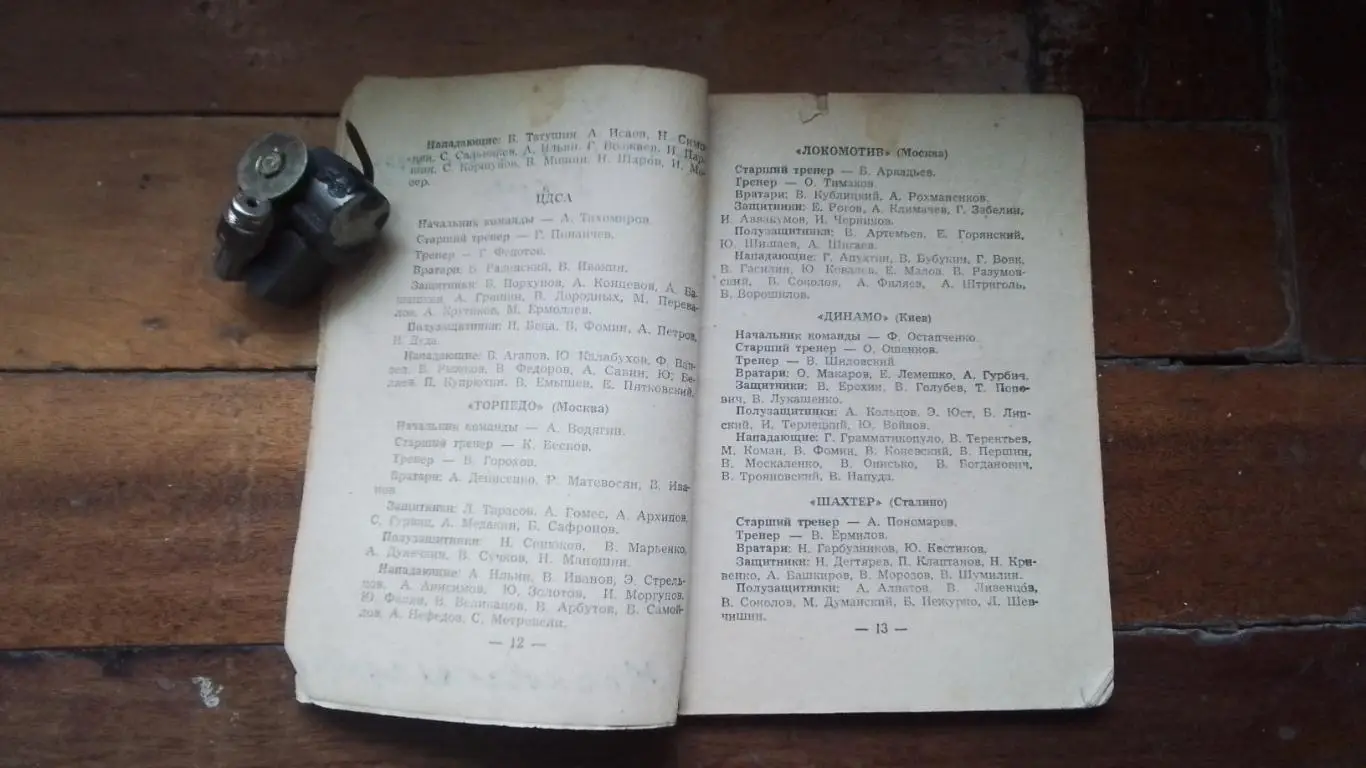 Нападающие: Б. Татушин, А. Исаев, Н. Симо-
нян, С. Сальников, А. Ильин, Г.
шин, С. Коршунов, В. Мишин, Н. Шаров, И. Мо-
зер.
ЦДСА
Начальник команды — А. Тихомиров.
Старший тренер — Г. Пинаичев.
Тренер — Г. Федотов.
Вратари: Б. Разинский, В. Ивакин.
Защитники: Б. Порхунов, А. Концевой, А. Ба-
шашкин, А. Гринин, В. Дородных, М. Перева-
лов, А. Крутиков, М. Ермолаев.
Полузащитники: И. Беца, В. Фомин, А. Петров,
И. Дуда.
Нападающие: В. Агапов, Ю. Калабухов, Ф. Ван-
зел, Е. В. Федоров, А. Савин, Ю. Бе-
ляев, П. Купрюхин, В. Емышев, Е. Пятковский.
«ТОРПЕДО» (Москва)
Начальник команды — А. Водягин.
Старший тренер — К. Бесков.
Тренер — В. Горохов.
Вратари: А. Денисенко, Р. Матевосян, В. Ива-
нов
Защитники: Л. Тарасов, А. Гомес, А. Архипов,
С. Гурвиц, А. Медакин, Б. Сафронов.
Полузащитники: Н. Сенюков, В. Марьенко,
А. В. Сучков, Н. Маношин.
Нападающие: А. Ильин, В. Иванов, Э. Стрель-
цов, А. Анисимов, Ю. Золотов, И. Моргунов,
Ю. Фалин, В. Великанов, В. Арбутов, В. Самой-
лов, А. Нефедов, С. Метревели.
— 12 —
«ЛОКОМОТИВ» (Москва)
Старший тренер — Б. Аркадьев.
Тренер — О. Тимаков.
Вратари: В. Кублицкий, А. Рохманенков.
Защитники: Е. Рогов, А. Климачев, Г. Забелин,
И. Аввакумов, И. Черников.
Полузащитники: В. Артемьев, Е. Горянский,
Ю. Шишаев, А. Шигаев.
Нападающие: Г. Апухтин, В. Бубукин, Г. Вовк,
В. Гасилин, Ю. Ковалев, Е. Малов, В. Разумов-
ский, В. Соколов, А. Филяев, А. Штриголь,
В. Ворошилов.
«ДИНАМО» (Киев)
Начальник команды — Ф. Остапченко.
Старший тренер — О. Ошенков.
Тренер — В. Шиловский
Вратари: О. Макаров, Е. Лемешко, А. Гурбич.
Защитники: В. Ерохин, В. Голубев, Т. Попо-
вич, В. Лукашенко.
Полузащитники: А. Кольцов, Э. Юст, Б. Лип-
ский, И. Терлецкий, Ю. Войнов.
Нападающие: Г. Грамматикопуло, В. Терентьев,
М. Коман, В. Фомин, В. Каневский, В. Першин,
В. Москаленко, В. Онисько, В. Богданович,
В. Трояновский, В. Цапуда.
«ШАХТЕР» (Сталино)
Старший тренер — А. Пономарев.
Тренер — В. Ермилов.
Вратари: Н. Гарбузников, Ю. Костиков.
Защитники: Н. Дегтярев, П. Клаптанов, Н. Кри-
венко, А. Башкиров, В. Морозов, В. Шумилин.
Полузащитники: А. Алпатов, В. Ливенцов,
В. Соколов, М. Думанский, Б. Нежурко, Л. Шев-
чишин.
— 13 —